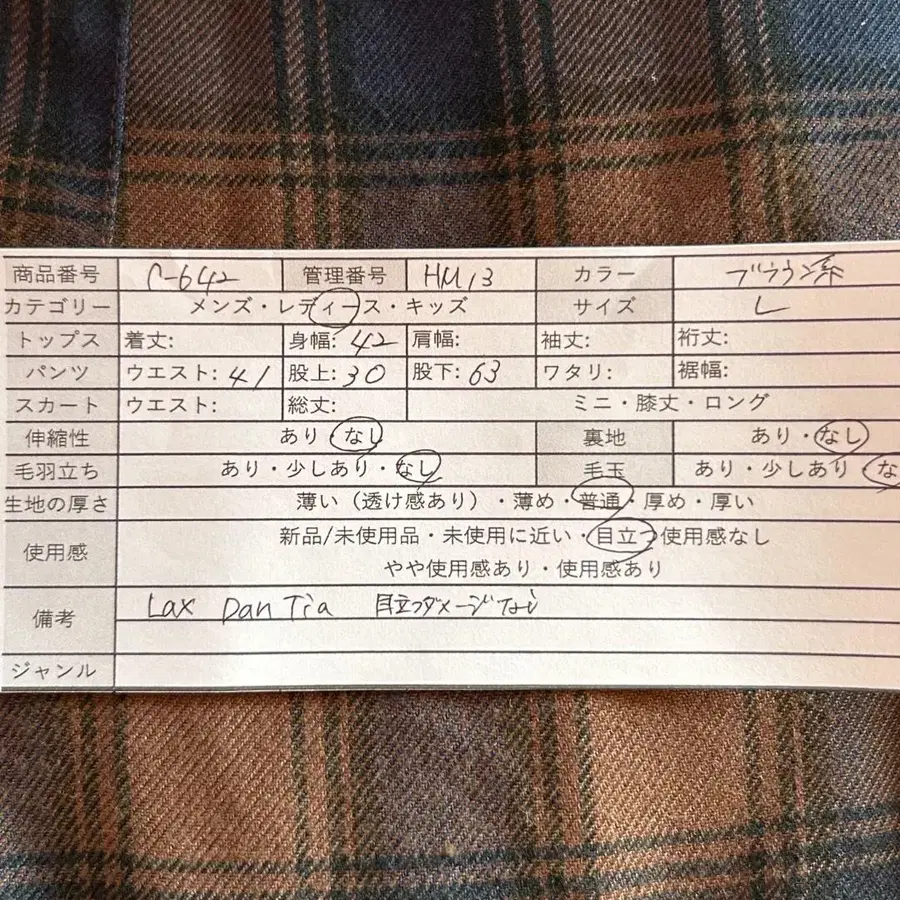 商品番号 C-642 管理番号 HM13 カラー ブラウン系
カテゴリー メンズ・レディース・キッズ サイズ L
トップス 着丈: 身幅: 42 肩幅: 袖丈: 裄丈:
パンツ ウエスト: 41 股上: 30 股下: 63 ワタリ: 裾幅:
スカート ウエスト: 総丈: ミニ・膝丈・ロング
伸縮性 あり・なし 裏地 あり・なし
毛羽立ち あり・少しあり・なし 毛玉 あり・少しあり・な
生地の厚さ 薄い（透け感あり）・薄め・普通・厚め・厚い
使用感 新品/未使用品・未使用に近い・目立つ使用感なし
やや使用感あり・使用感あり
備考 Lax Dan Tia 目立つダメージなし
ジャンル